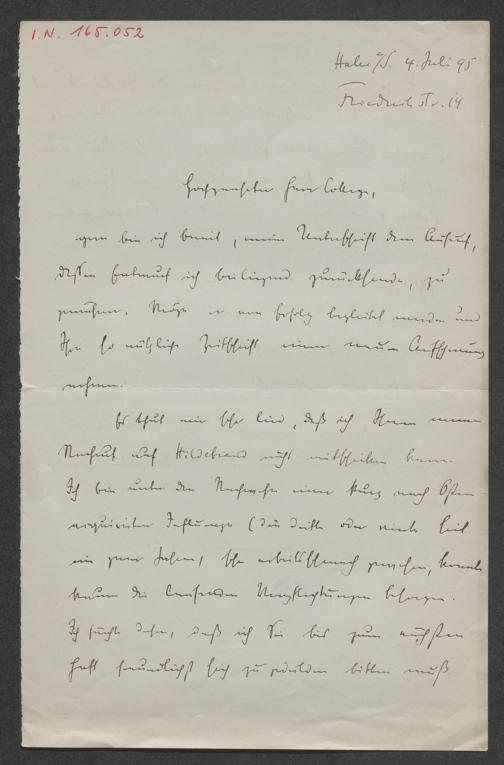 I.N. 165.052
Halle a/S. 4. Juli 95
Friedrichstr. 14
Hochgeehrter Herr College,
gern bin ich bereit, meine Unterschrift dem Aufruf,
dessen Entwurf ich beiliegend zurücksende, zu
gewähren. Möge er von Erfolg begleitet werden und
Ihre so nützliche Zeitschrift einen neuen Aufschwung
nehmen.
Es thut mir sehr leid, daß ich Ihnen meinen
Nachruf auf Hildebrand nicht mittheilen kann.
Ich bin unter den Nachwehen einer kurz nach Ostern
acquirirten Influenza (die dritte oder vierte seit
ein paar Jahren) sehr arbeitsschwach gewesen, konnte
kaum die laufenden Verpflichtungen besorgen.
Ich fürchte daher, daß ich Sie bis zum nächsten
Heft freundlichst sich zu gedulden bitten muß